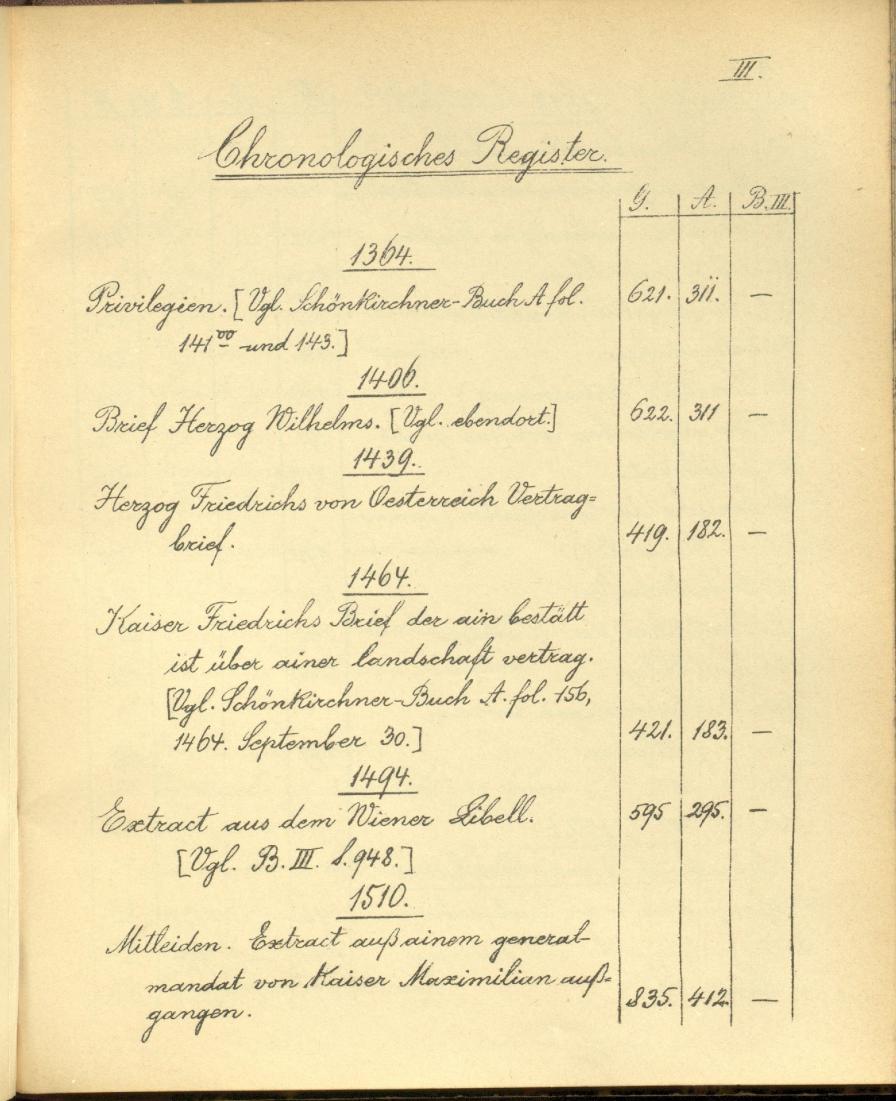 III.
Chronologisches Register.
G. A. B.III.
1364.
Privilegien. [Vgl. Schönkirchner-Buch A fol. 621. 311. —
141 und 143.]
1406.
Brief Herzog Wilhelms. [Vgl. ebendort.] 622. 311 —
1439.
Herzog Friedrichs von Oesterreich Vertrag=
brief. 419. 182. —
1464.
Kaiser Friedrichs Brief der ain bestätt
ist über ainer landschaft vertrag.
[Vgl. Schönkirchner-Buch A. fol. 156,
1464. September 30.] 421. 183. —
1494.
Extract aus dem Wiener Libell. 595 295. —
[Vgl. B. III. f. 948.]
1510.
Mitleiden. Extract auß ainem general-
mandat von Kaiser Maximilian auß=
gangen. 835. 412 —